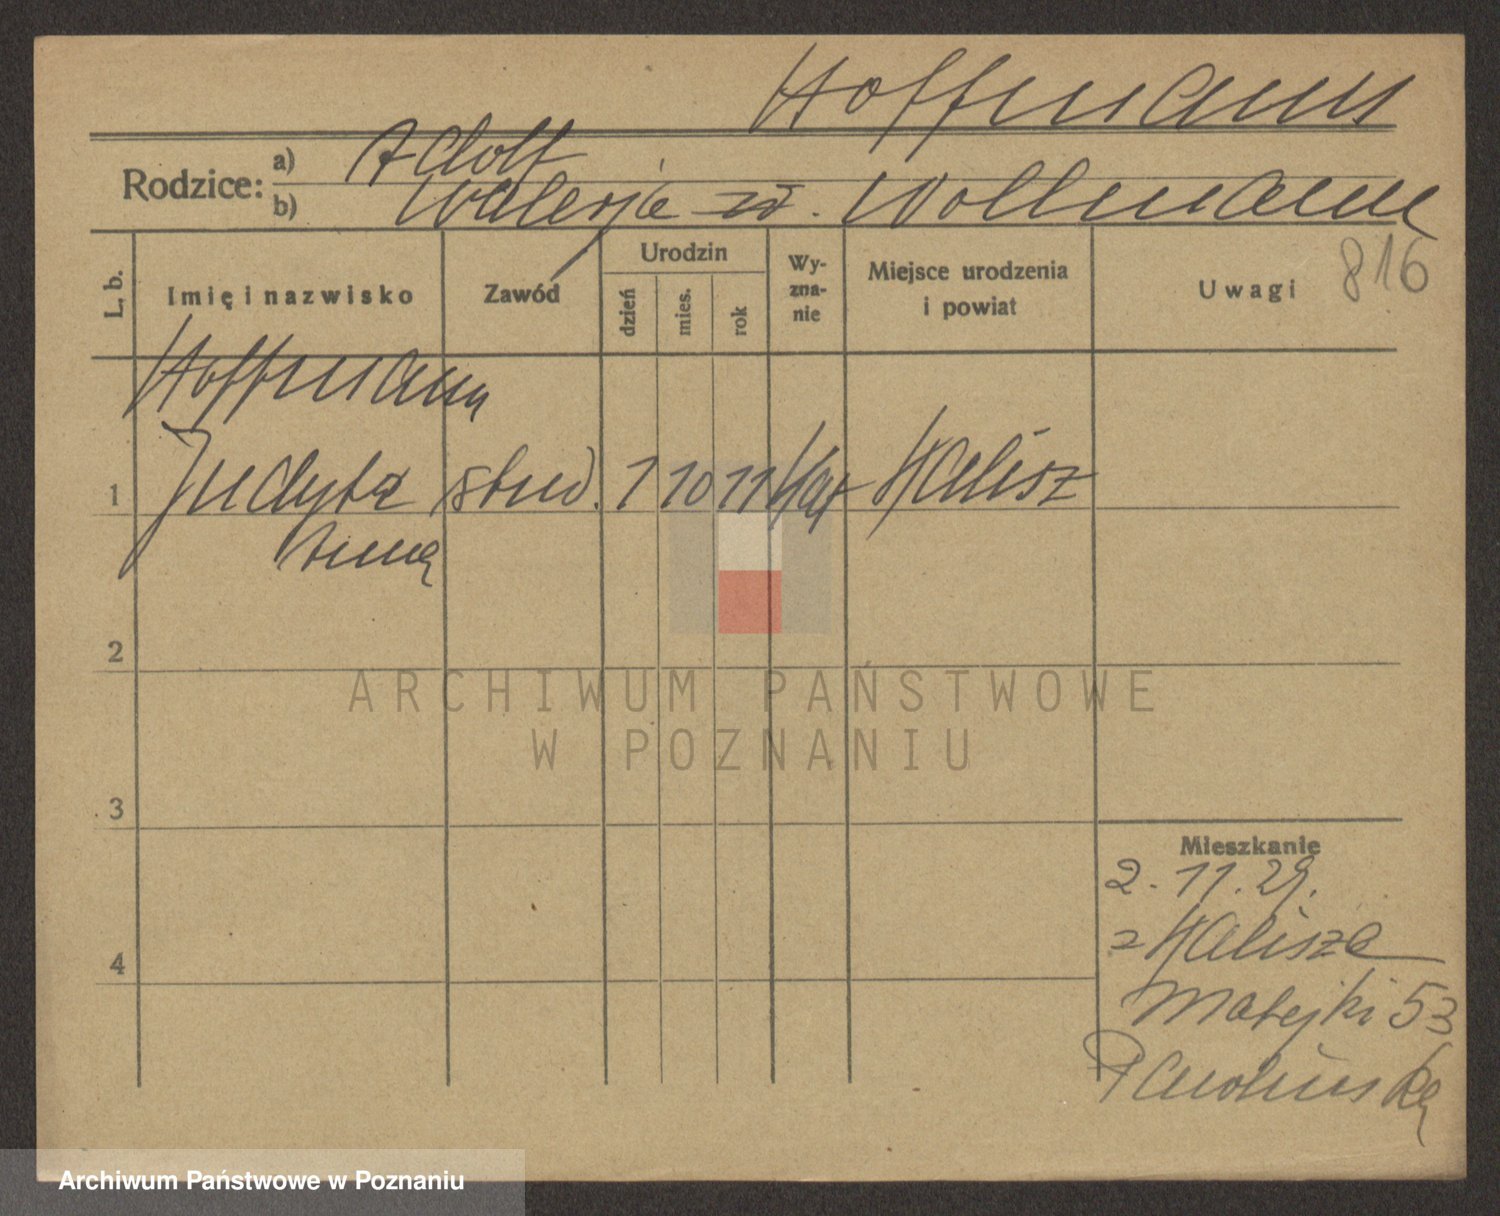 Hoffmann
Rodzice: a) Adolf
b) Walerja z d. Wollmann
L. b. Imię i nazwisko Zawód Urodzin dzień mies. rok Wy-zna-nie Miejsce urodzenia i powiat Uwagi 816
Hoffmann
1 Judyta stud. 1 10 11 kat Kalisz
Anna
2
ARCHIWUM PAŃSTWOWE
W POZNANIU
3
Mieszkanie
2. 11. 29.
z Kalisza
4
Matejki 53
Archiwum Państwowe w Poznaniu